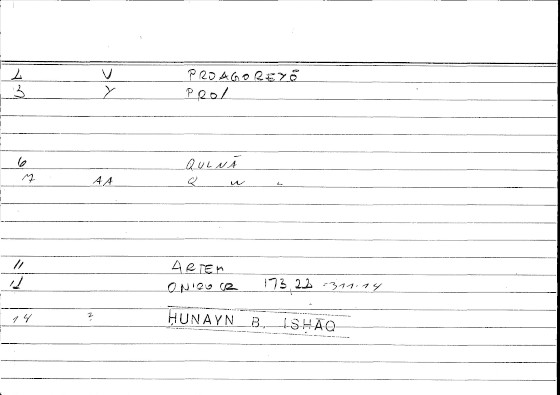 1 V PROAGOREYŌ
3 Y PRO/
6 QULNĀ
7 AA Q W L
11 ARTEM
12 ONIROCR 173,22 - 311.14
14 ? HUNAYN B. ISHAQ